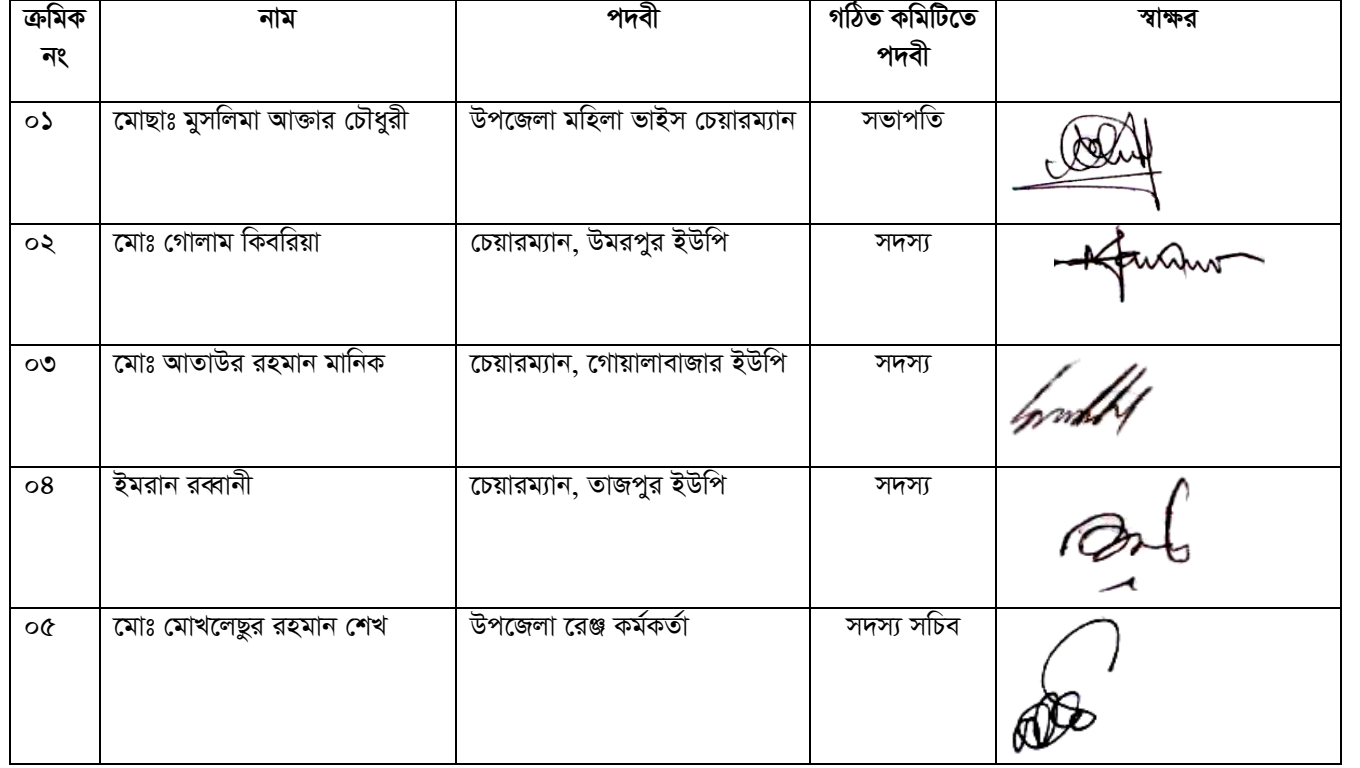 ক্রমিক নাম পদবী গঠিত কমিটিতে স্বাক্ষর
নং পদবী
০১ মোছাঃ মুসলিমা আক্তার চৌধুরী উপজেলা মহিলা ভাইস চেয়ারম্যান সভাপতি
০২ মোঃ গোলাম কিবরিয়া চেয়ারম্যান, উমরপুর ইউপি সদস্য
০৩ মোঃ আতাউর রহমান মানিক চেয়ারম্যান, গোয়ালাবাজার ইউপি সদস্য
০৪ ইমরান রব্বানী চেয়ারম্যান, তাজপুর ইউপি সদস্য
০৫ মোঃ মোখলেছুর রহমান শেখ উপজেলা রেঞ্জ কর্মকর্তা সদস্য সচিব